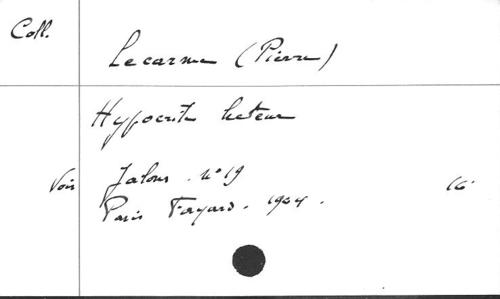 Coll.
Lecarme (Pierre)
Hypocrite lecteur
Voir Jalons. n° 19
Paris Fayard. 1904. 16°